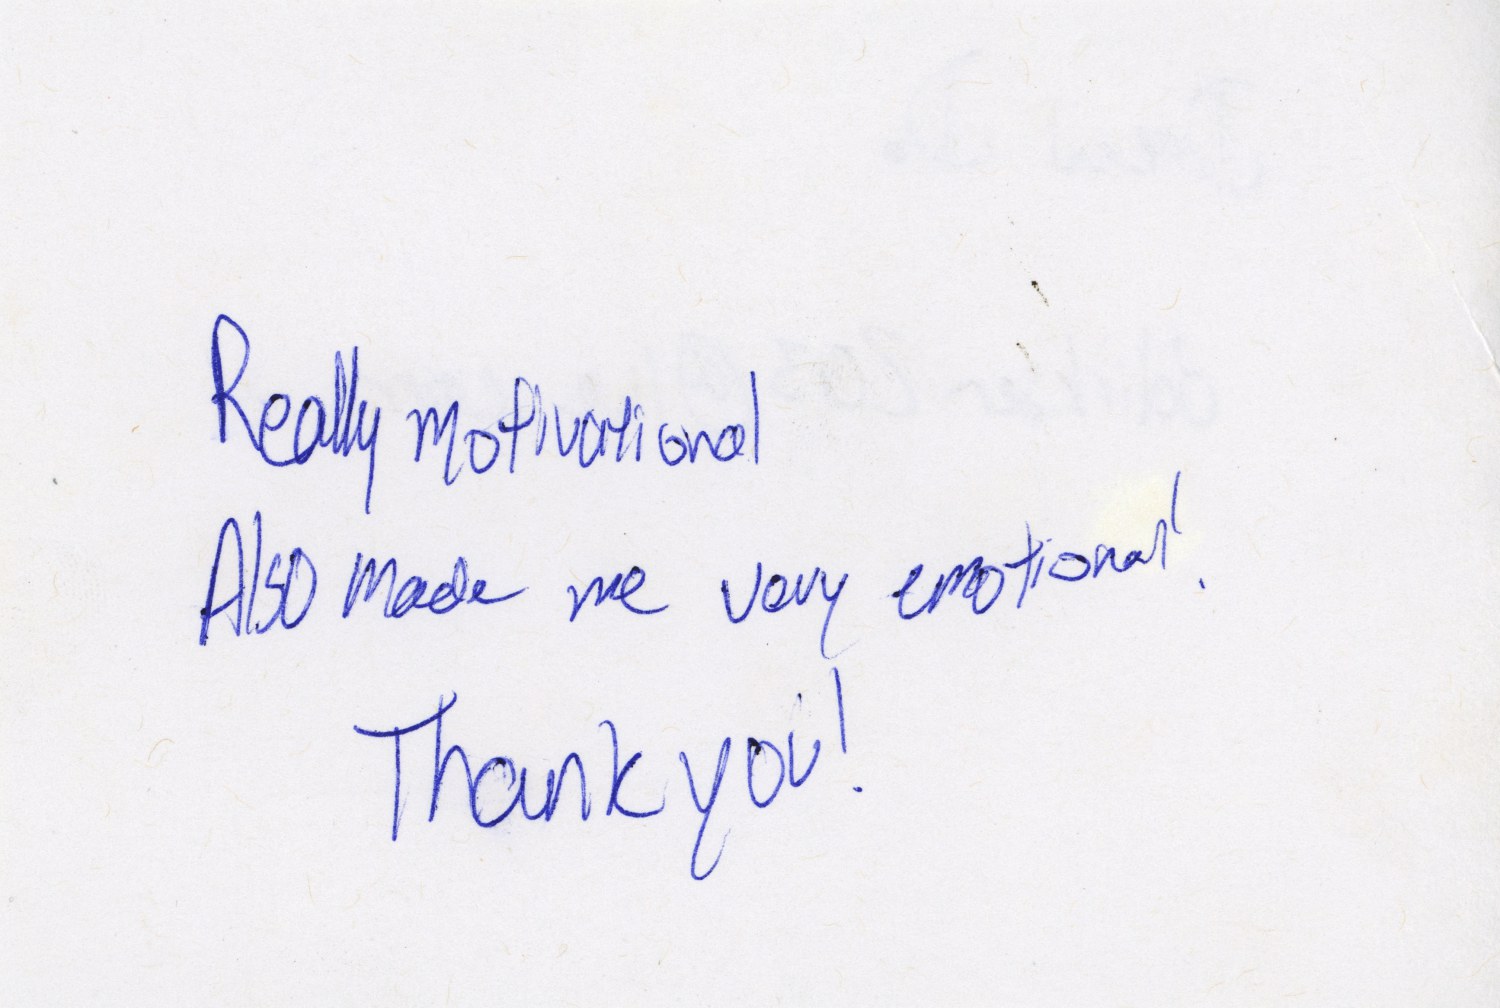 Really motivational
Also made me very emotional!
Thank you!